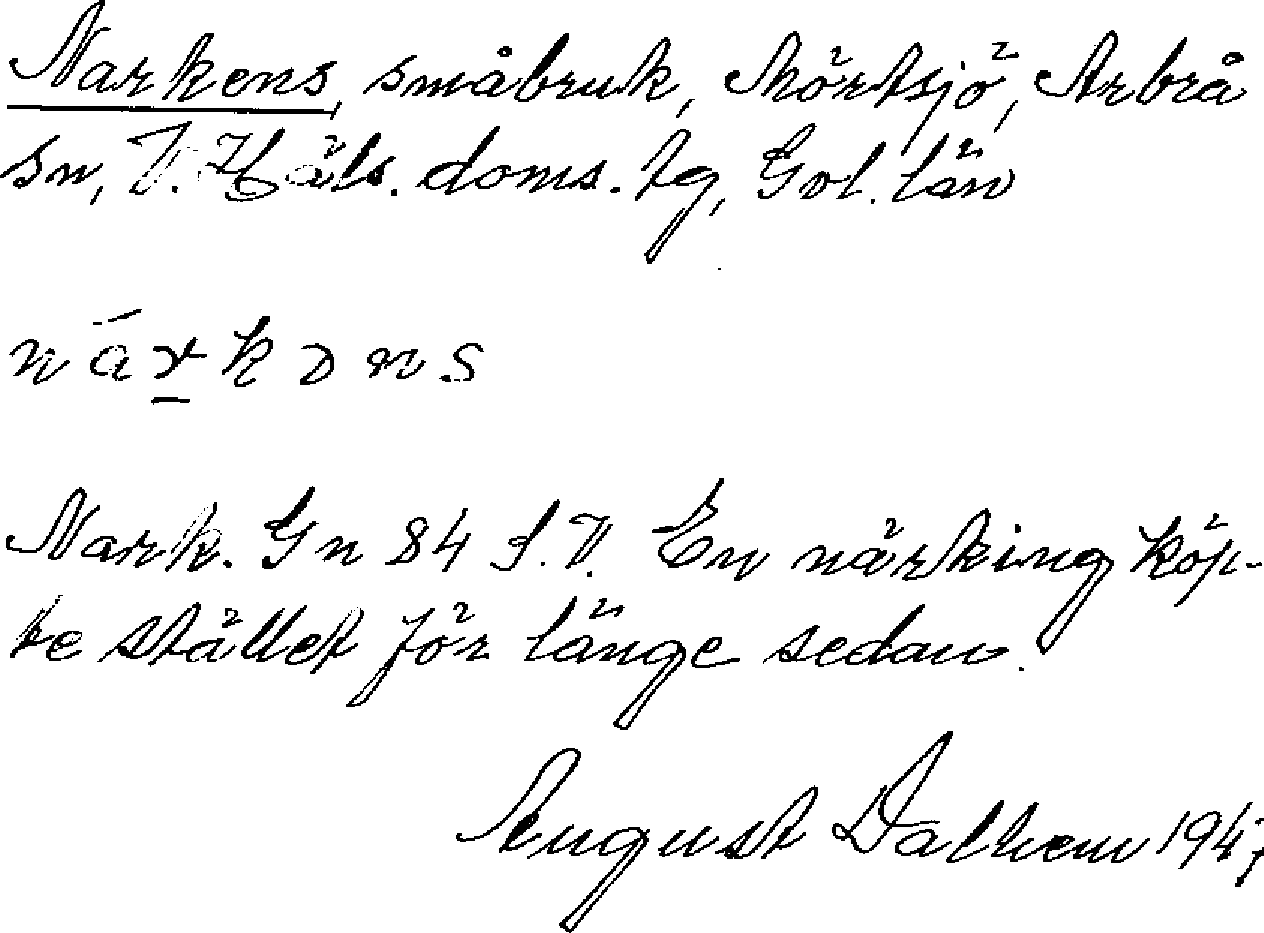 Narkens, småbruk, Mörtsjö, Arbrå
sn, V. Häls. doms. tg, Gvl. län
Nark. Gn 84 S.V. En närking köp-
te stället för länge sedan.
August Dalhem 1947